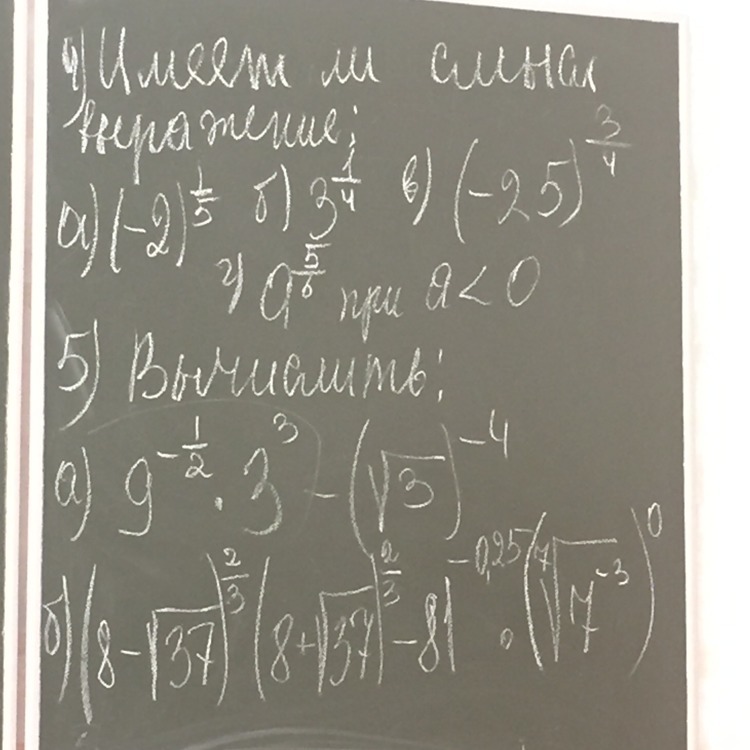 4) Имеет ли смысл
выражение:
а) (-2)^{1/5} б) 3^{1/4} в) (-25)^{3/4}
г) a^{5/6} при a < 0
5) Вычислить:
а) 9^{-1/2} · 3^3 - (√3)^{-4}
б) (8-√37)^{2/3} (8+√37)^{2/3} - 81^{-0,25} · (⁷√7^{-3})^0